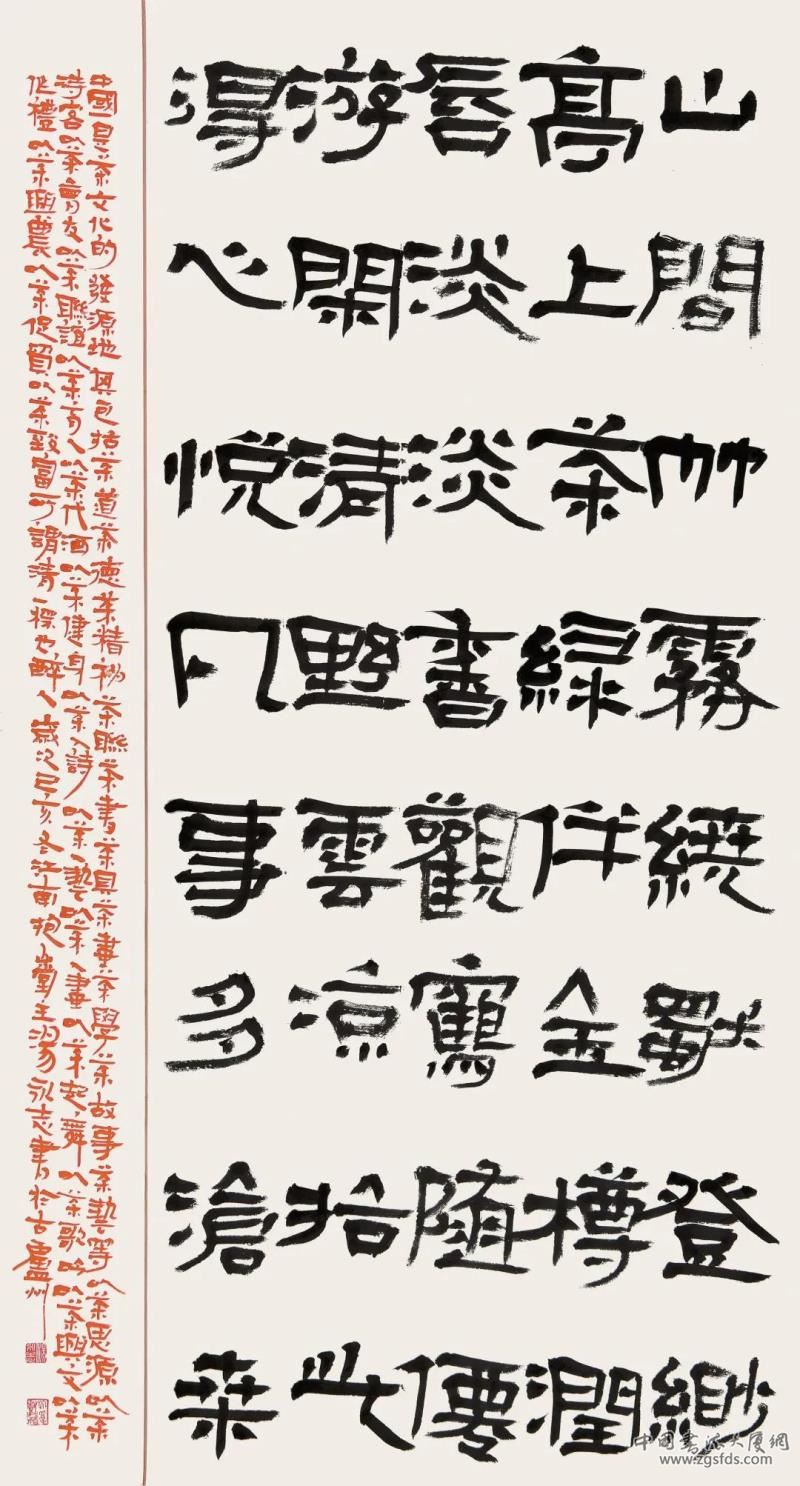 山間竹霧繞獨登緲
高上茶綠伴金樽潤
唇淡淡書觀鶴隨僊
游閑清野雲凉拾此
得心悅凡事多滄桑
中國是茶文化的發源地其包括茶道茶德茶精神茶聯茶書茶具茶畫茶學茶故事茶藝等以茶思源以茶
待客以茶會友以茶聯誼以茶育人以茶代酒以茶健身以茶入詩以茶入藝以茶入畫以茶起舞以茶歌吟以茶興文以茶
作禮以茶興農以茶促貿以茶致富可謂清也醉人歲次己亥冬江南抱主湯永志書於古廬州
中国书法大厦網
www.zgsfds.com